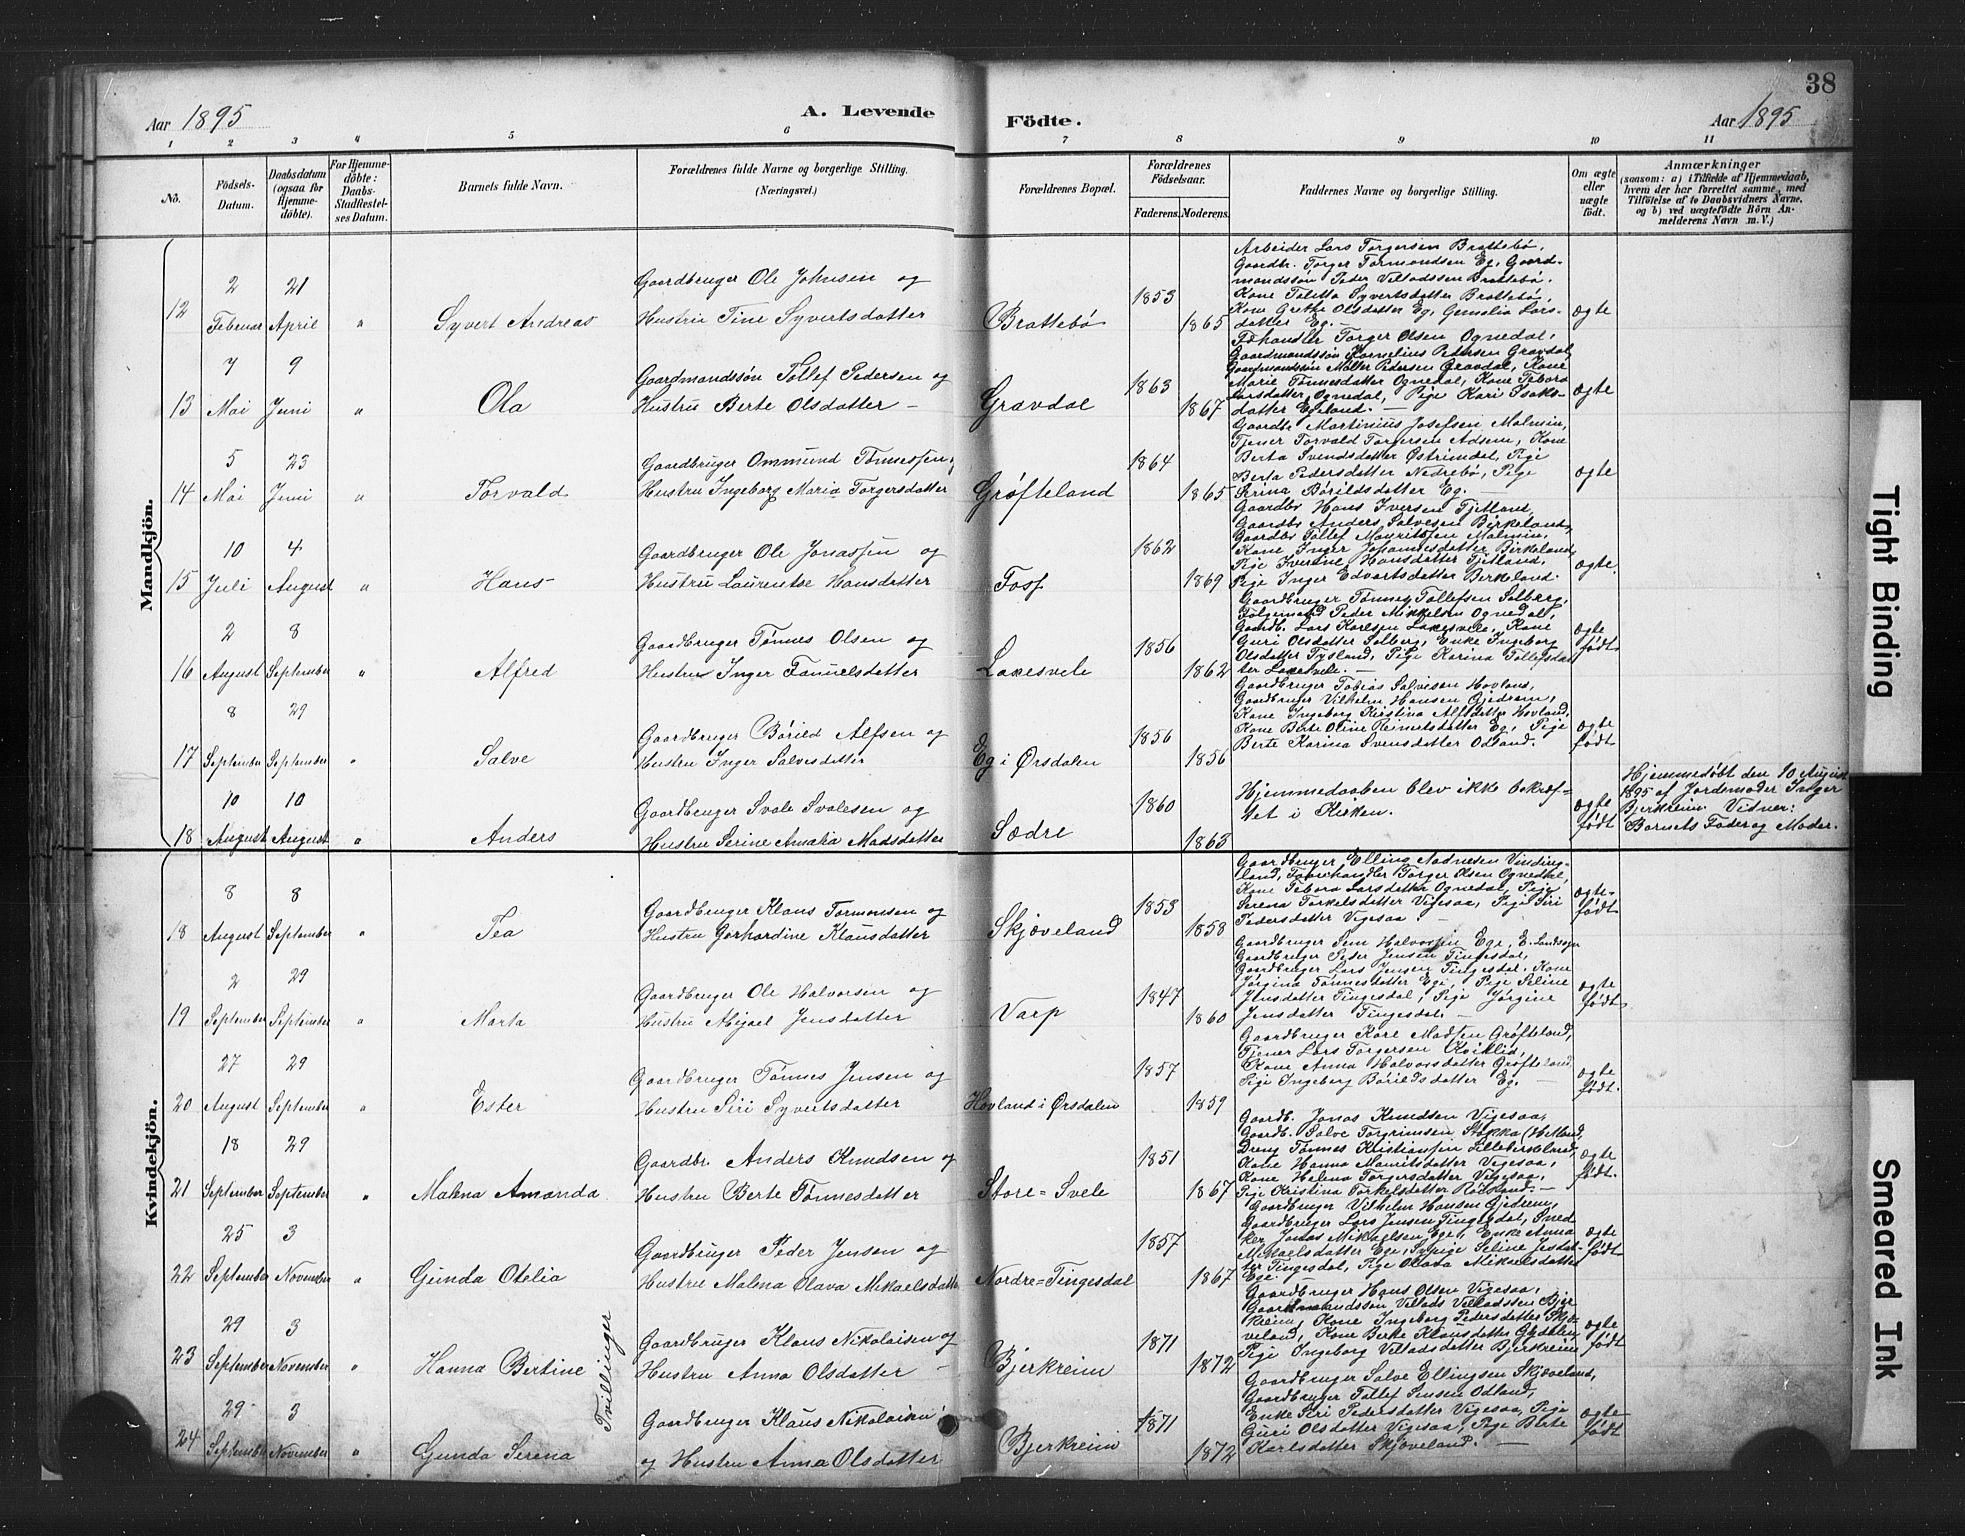 38
Aar 1895
A. Levende
Födte.
Aar 1895
1 2 3 4 5 6 7 8 9 10 11
No.
Födsels-Datum.
Daabsdatum (ogsaa for Hjemmedöbte).
For Hjemmedöbte: Daabs-Stadfæstelses Datum.
Barnets fulde Navn.
Forældrenes fulde Navne og borgerlige Stilling. (Næringsvei.)
Forældrenes Bopæl.
Forældrenes Födselsaar.
Faderens. Moderens.
Faddernes Navne og borgerlige Stilling.
Om ægte eller uægte födt.
Anmærkninger
(saasom: a) i Tilfælde af Hjemmedaab, hvem der har forrettet samme, med Tilföielse af to Daabsvidners Navne, og b) ved uægtefödte Börn Anmelderens Navn m. V.)
Mandkjön.
12
2 Februar
21 April
"
Syvert Andreas
Gaardbruger Ole Johnsen og
Hustru Tine Syvertsdatter
Brattebø
1853
1865
Arbeider Lars Torgersen Brattebø,
Gaardbr. Torger Tormondsen Eg, Gaard-
mandssøn Peder Villadssen Brattebø,
Kone Toletta Syvertsdatter Brattebø,
Kone Grethe Olsdatter Eg, Gemalia Lars-
datter Eg.
ægte
13
7 Mai
9 Juni
"
Ola
Gaardmandssön Tollef Pedersen og
Hustru Berte Olsdatter –
Gravdal
1863
1867
Fæhandler Torger Olsen Ognedal,
Gaardmandssøn Kornelius Petersen Gravdal,
Gaardmandssøn Møller Pedersen Gravdal, Kone
Marie Tønnesdatter Ognedal, Kone Tebora
Larsdatter Ognedal, Pige Kari Isaks-
datter Egeland. –
ægte
14
5 Mai
23 Juni
"
Torvald
Gaardbruger Ommund Tønnessen,
Hustru Ingeborg Maria Torgersdatter
Grøfteland
1864
1865
Gaardbr Martinius Josefsen Malmin,
Tjener Torvald Torgersen Adsem, Kone
Berta Svendsdatter Østrimdal, Pige
Berta Pedersdatter Nedrebø, Pige
Serina Børildsdatter Eg.
ægte
15
10 Juli
4 August
"
Hans
Gaardbruger Ole Jonassen og
Hustru Laurentse Hansdatter
Foss
1862
1869
Gaardbr Hans Iversen Tjetland,
Gaardbr Anders Salvesen Birkeland,
Gaardbr Tollef Mauritssen Malmin,
Kone Inger Johannesdatter Birkeland,
Pige Ivertine Hansdatter Tjetland,
Pige Inger Edvartsdatter Berkeland.
ægte
16
2 August
8 September
"
Alfred
Gaardbruger Tønnes Olsen og
Hustru Inger Samuelsdatter
Laxesvele
1856
1862
Gaardbruger Tønnes Tollefsen Solberg,
Peder Mikkelsen Ognedal,
Gaardb. Lars Karlsen Laxesvele, Kone
Guri Olsdatter Solberg, Enke Ingeborg
Olsdatter Tysland, Pige Karina Tollefsdat
ter Laxesvele. –
ægte
født
17
8 September
29 September
"
Salve
Gaardbruger Børild Alfsen og
Hustru Inger Salvesdatter
Eg i Ørsdalen
1856
1856
Gaardbruger Tobias Salvesen Hovland,
Gaardbruger Vilhelm Hansen Gjedrem,
Kone Ingeborg Kristina Alfsdatter Hovland,
Kone Berte Oline Reinertsdatter Eg, Pige
Berte Karina Svensdatter Odland.
ægte
født
18
10 August
10 August
"
Anders
Gaardbruger Svale Svalesen og
Hustru Serine Amalia Madsdatter
Sædre
1860
1863
Hjemmedaaben blev ikke bekræf-
tet i Kirken.
ægte
født
Hjemmedøbt den 10 August
1895 af Jordemoder Inger
Bjerkreim. Vidner:
Barnets Fader og Moder.
Kvindekjön.
18
8 August
8 September
"
Tea
Gaardbruger Klaus Tormonsen og
Hustru Gorhardine Klausdatter
Skjæveland
1853
1858
Gaardbruger Elling Aadnesen Vinding-
land, Faarehandler Torger Olsen Ognedal,
Kone Tebora Larsdatter Ognedal, Pige
Serena Torkelsdatter Vigesaa, Pige Siri
Pedersdatter Vigesaa. –
ægte-
født
19
2 September
29 September
"
Marta
Gaardbruger Ole Halvorsen og
Hustru Abigael Jensdatter
Varp
1847
1860
Gaardbruger Sem Halvorsen Ege, E. Landsogn
Gaardbruger Peder Jensen Tingesdal,
Gaardbruger Lars Jensen Tingesdal. Kone
Jørgina Tønnesdatter Ege, Pige Seline
Jensdatter Tingesdal, Pige Jørgine
Jensdatter Tingesdal. –
ægte
født
20
27 August
29 September
"
Ester
Gaardbruger Tønnes Jensen og
Hustru Siri Syvertsdatter
Hovland i Ørsdalen
1857
1859
Gaardbruger Kare Madsen Grøfteland,
Tjener Lars Torgersen Kviklid,
Kone Anna Halvorsdatter Grøfteland,
Pige Ingeborg Børildsdatter Eg. –
ægte
født.
21
18 September
29 September
"
Malena Amanda
Gaardbr. Anders Knudsen og
Hustru Berte Tønnesdatter
Store=Svele
1851
1867
Gaardb. Jonas Knudsen Vigesaa,
Gaardb. Salve Torgrimsen Stakka (Hetland,
Dreng Tønnes Kristiansen Lillebersland,
Kone Hanna Mauritsdatter Vigesaa,
Kone Helena Torgersdatter Vigesaa,
Pige Kristina Torkelsdatter Rødland.
ægte
født.
22
25 September
3 November
"
Gunda Otelia
Gaardbruger Peder Jensen og
Hustru Malena Olava Mikaelsdatter
Nordre=Tingesdal
1857
1867
Gaardbruger Vilhelm Hansen Gjedrem,
Gaardbruger Lars Jensen Tingesdal, Sned
ker Jonas Mikaelsen Ege, Enke Anna
Mikaelsdatter Ege, Sypige Seline Jensdat-
ter Tingesdal, Pige Olava Mikaelsdatter
Ege.
ægte
født
23
29 September
3 November
"
Hanna Bertine
Tvillinger
Gaardbruger Klaus Nikolaisen og
Hustru Anna Olsdatter –
Bjerkreim
1871
1872
Gaardbruger Hans Olsen Vigesaa,
Gaardmandssøn Villads Villadssen Bjer
kreim, Kone Ingeborg Pedersdatter Skjæ-
veland, Kone Berte Klausdatter Gjødlen,
Pige Ingeborg Villadsdatter Bjerkreim
ægte
født
24
29 September
3 November
"
Gunda Serena
Gaardbruger Klaus Nikolaisen
og Hustru Anna Olsdatter
Bjerkreim
1871
1872
Gaardbruger Salve Ellingsen Skjæveland,
Gaardbruger Tollef Simsen Odland,
Enke Siri Pedersdatter Vigesaa, Pige
Guri Olsdatter Vigesaa, Pige Berte
Karlsdatter Skjæveland. –
ægte
født
Tight Binding
Smeared Ink